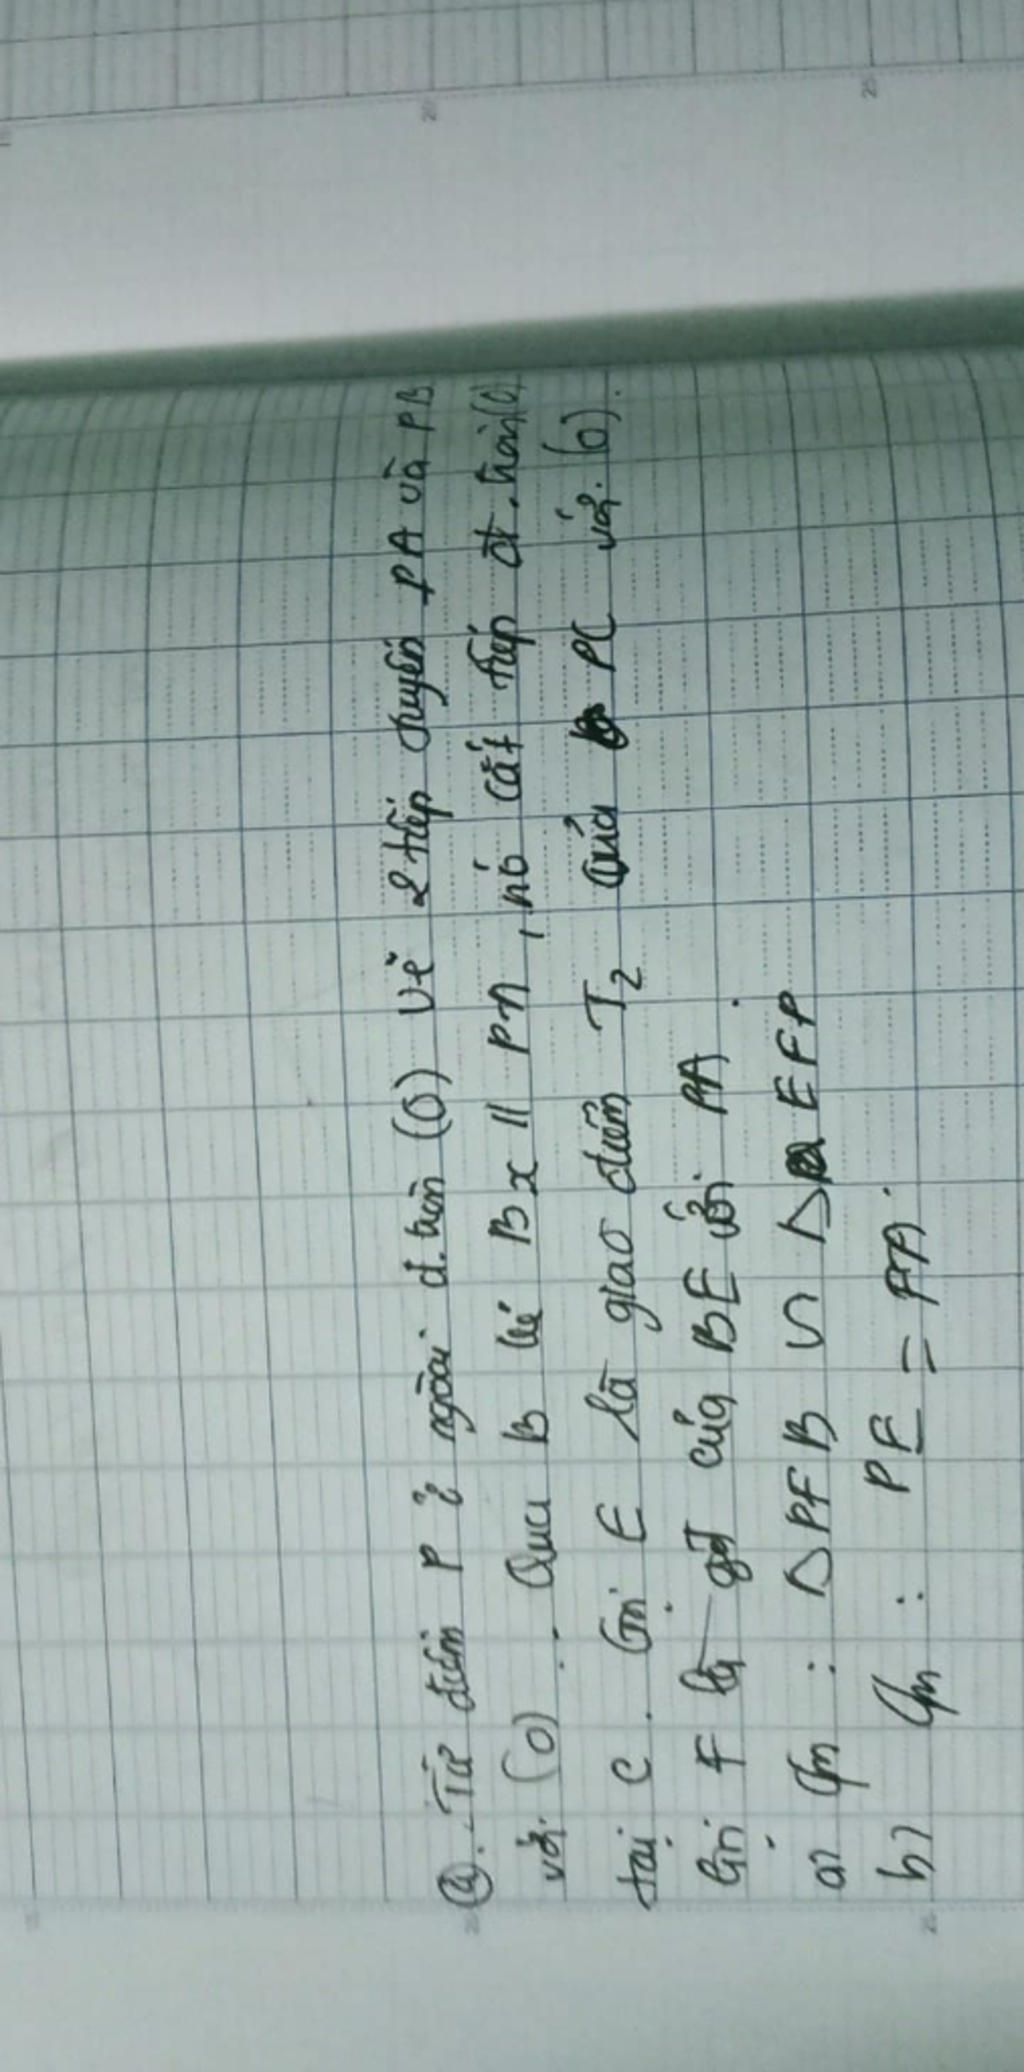 ④. Từ điểm P ở ngoài đ.tròn (O) vẽ 2 tiếp tuyến PA và PB
với (O). Qua B kẻ Bx // PA, nó cắt tiếp đ.tròn (O)
tại C. Gọi E là giao điểm T2 của PC với (O).
Gọi F là gđ của BE với PA.
a) Cm : Δ PFB ∽ Δ EFP
b) Cm : PF = FA.
20
25
20
25